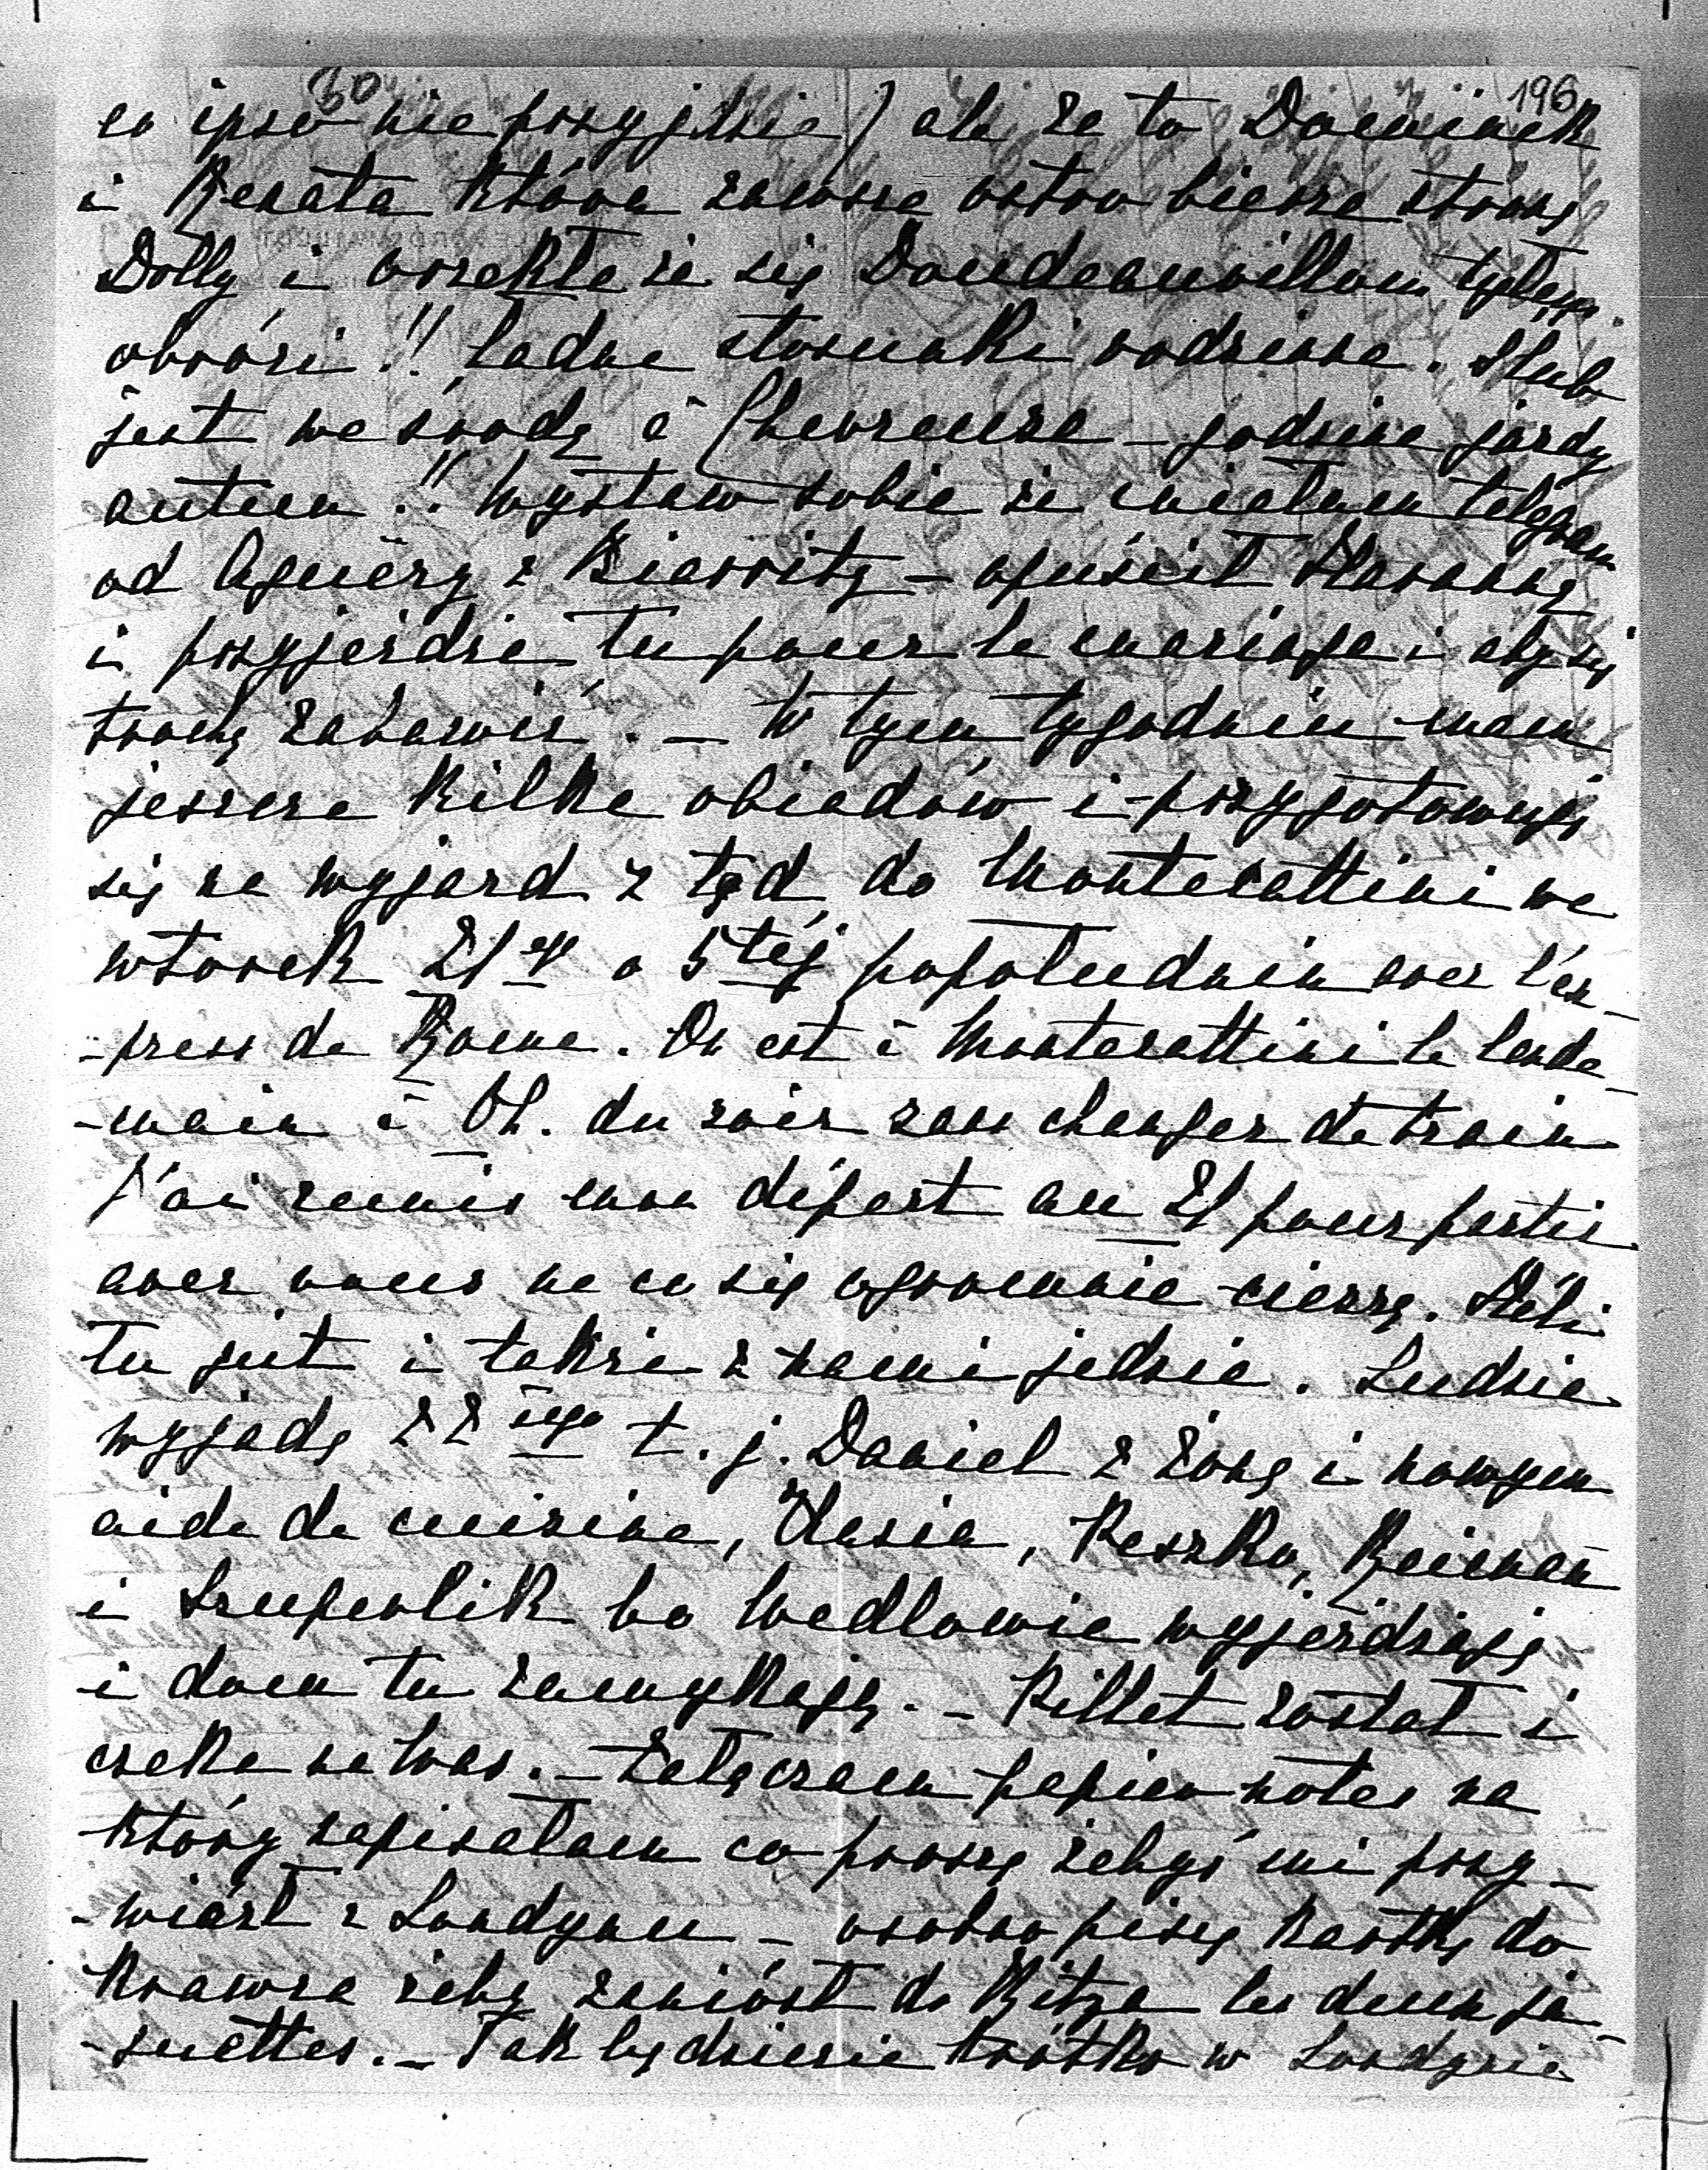 30 196
eo ipso nie przyjdzie) ale że to Dominik
i Renata która zawsze ostro bierze stronę
Dolly i orzekła że się Doudeauvillom tyłem
obróci!! Ładne stosunki rodzinne. Ślub
jest we środę à Chevreuse – godzina jazdy
autem!! Wystaw sobie że miałam telegram
od Aguéry z Biarritz – opuścił Havannę
i przyjeżdzie tu pour le mariage i aby się
trochę zabawić. – W tym tygodniu mam
jeszcze kilka obiadów i przygotowuję
się na wyjazd z tąd do Montecattini we
wtorek 21go o 5téj popołudniu avec l'ex-
-press de Rome. On est à Montecattini le lende-
-main à 6h. du soir sans changer de train
J'ai remis mon départ au 21 pour partir
avec vous na co się ogromnie cieszę.
tu jest i także z nami jedzie. Ludzie
wyjadą 22iego t. j. Daniel z żoną i nowym
aide de cuisine, Kasia, Peszko,
i bo Wedlowie wyjeżdżają
i dom tu zamykają. – Pillet został i
czeka na Was. – Załączam papier notes na
który zapisałam co proszę żebyś mi przy-
-wiózł z Londynu – osobno piszę kartkę do
Krawca żeby zaniósł do Ritza les deux ja-
-quettes. – Tak będziecie krótko w Londynie